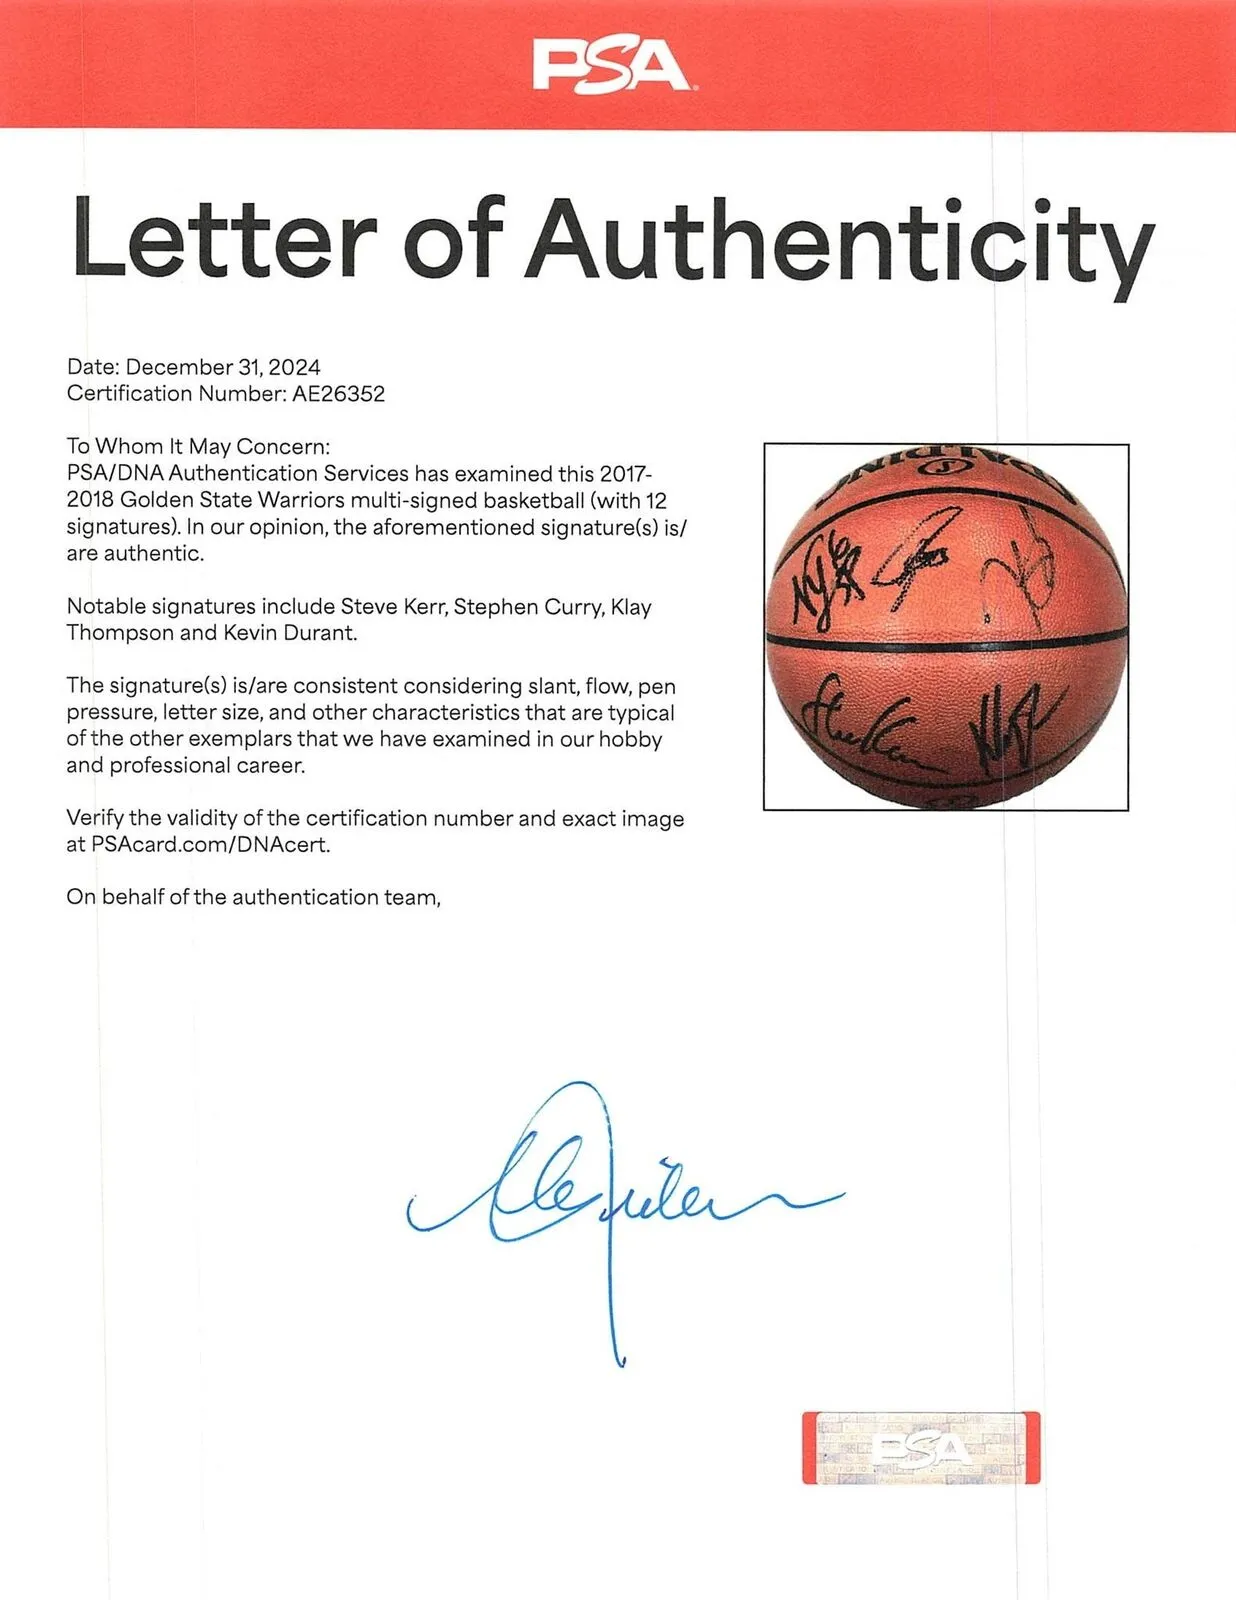 PSA
Letter of Authenticity
Date: December 31, 2024
Certification Number: AE26352
To Whom It May Concern:
PSA/DNA Authentication Services has examined this 2017-
2018 Golden State Warriors multi-signed basketball (with 12
signatures). In our opinion, the aforementioned signature(s) is/
are authentic.
Notable signatures include Steve Kerr, Stephen Curry, Klay
Thompson and Kevin Durant.
The signature(s) is/are consistent considering slant, flow, pen
pressure, letter size, and other characteristics that are typical
of the other exemplars that we have examined in our hobby
and professional career.
Verify the validity of the certification number and exact image
at PSAcard.com/DNAcert.
On behalf of the authentication team,
PSA